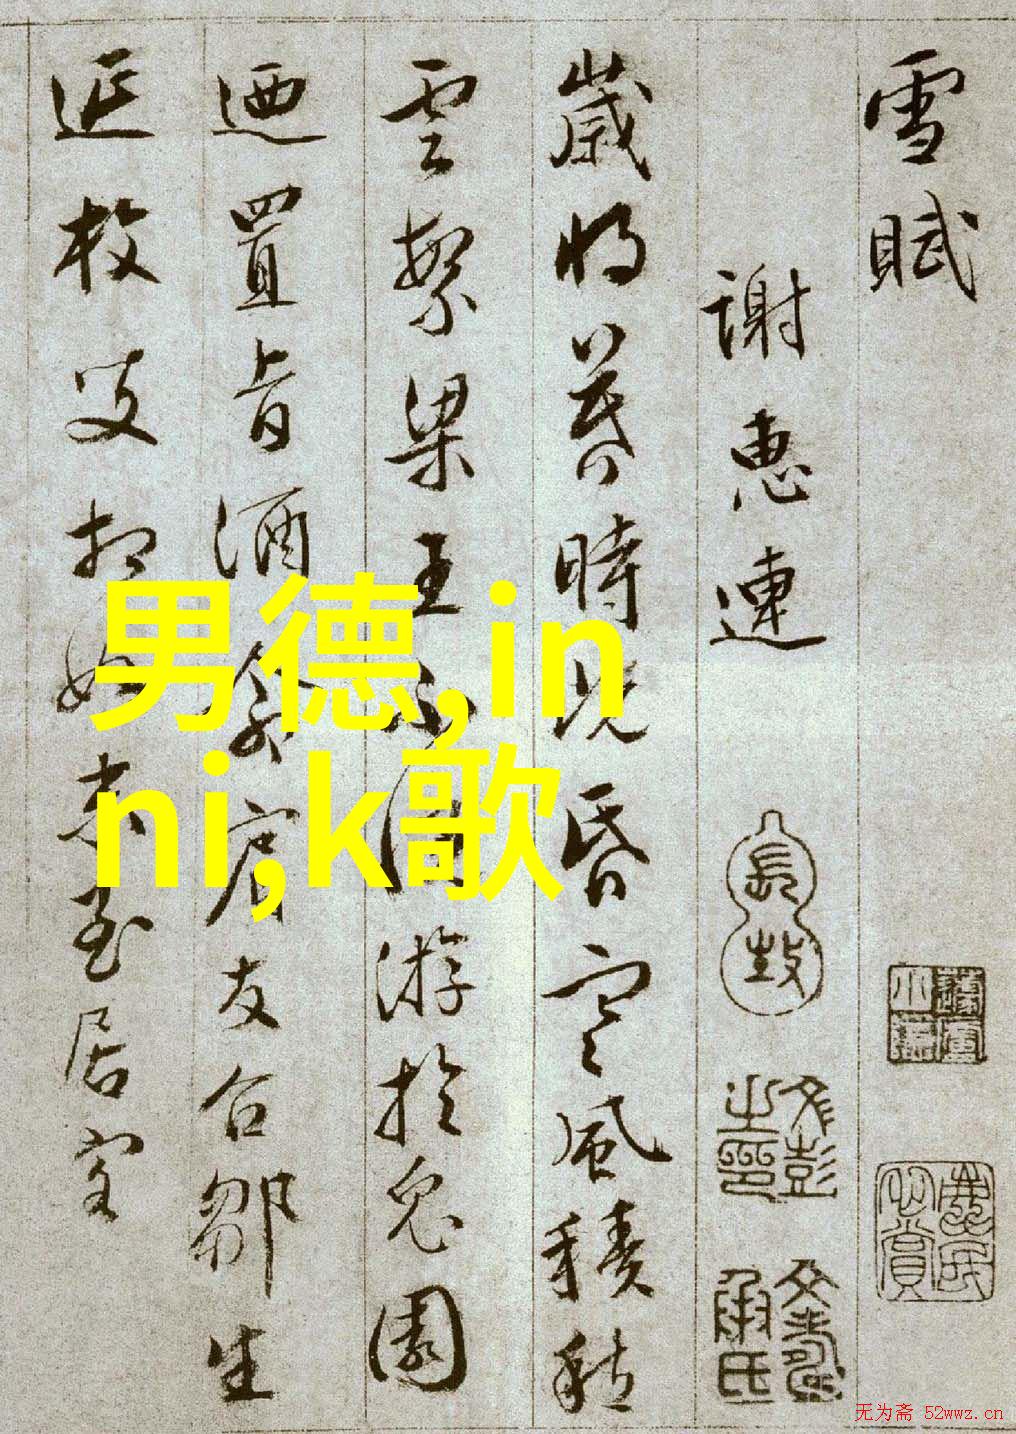 雪賦
謝惠連
歲將暮時既昏寒風積愁
雲繁梁王不悅游於兔園
迺置旨酒命賓友召鄒生
延枚叟相如末至居客
男德,in
ni,k歌
文彭之印
文壽承氏
无为斋 52wwz.cn